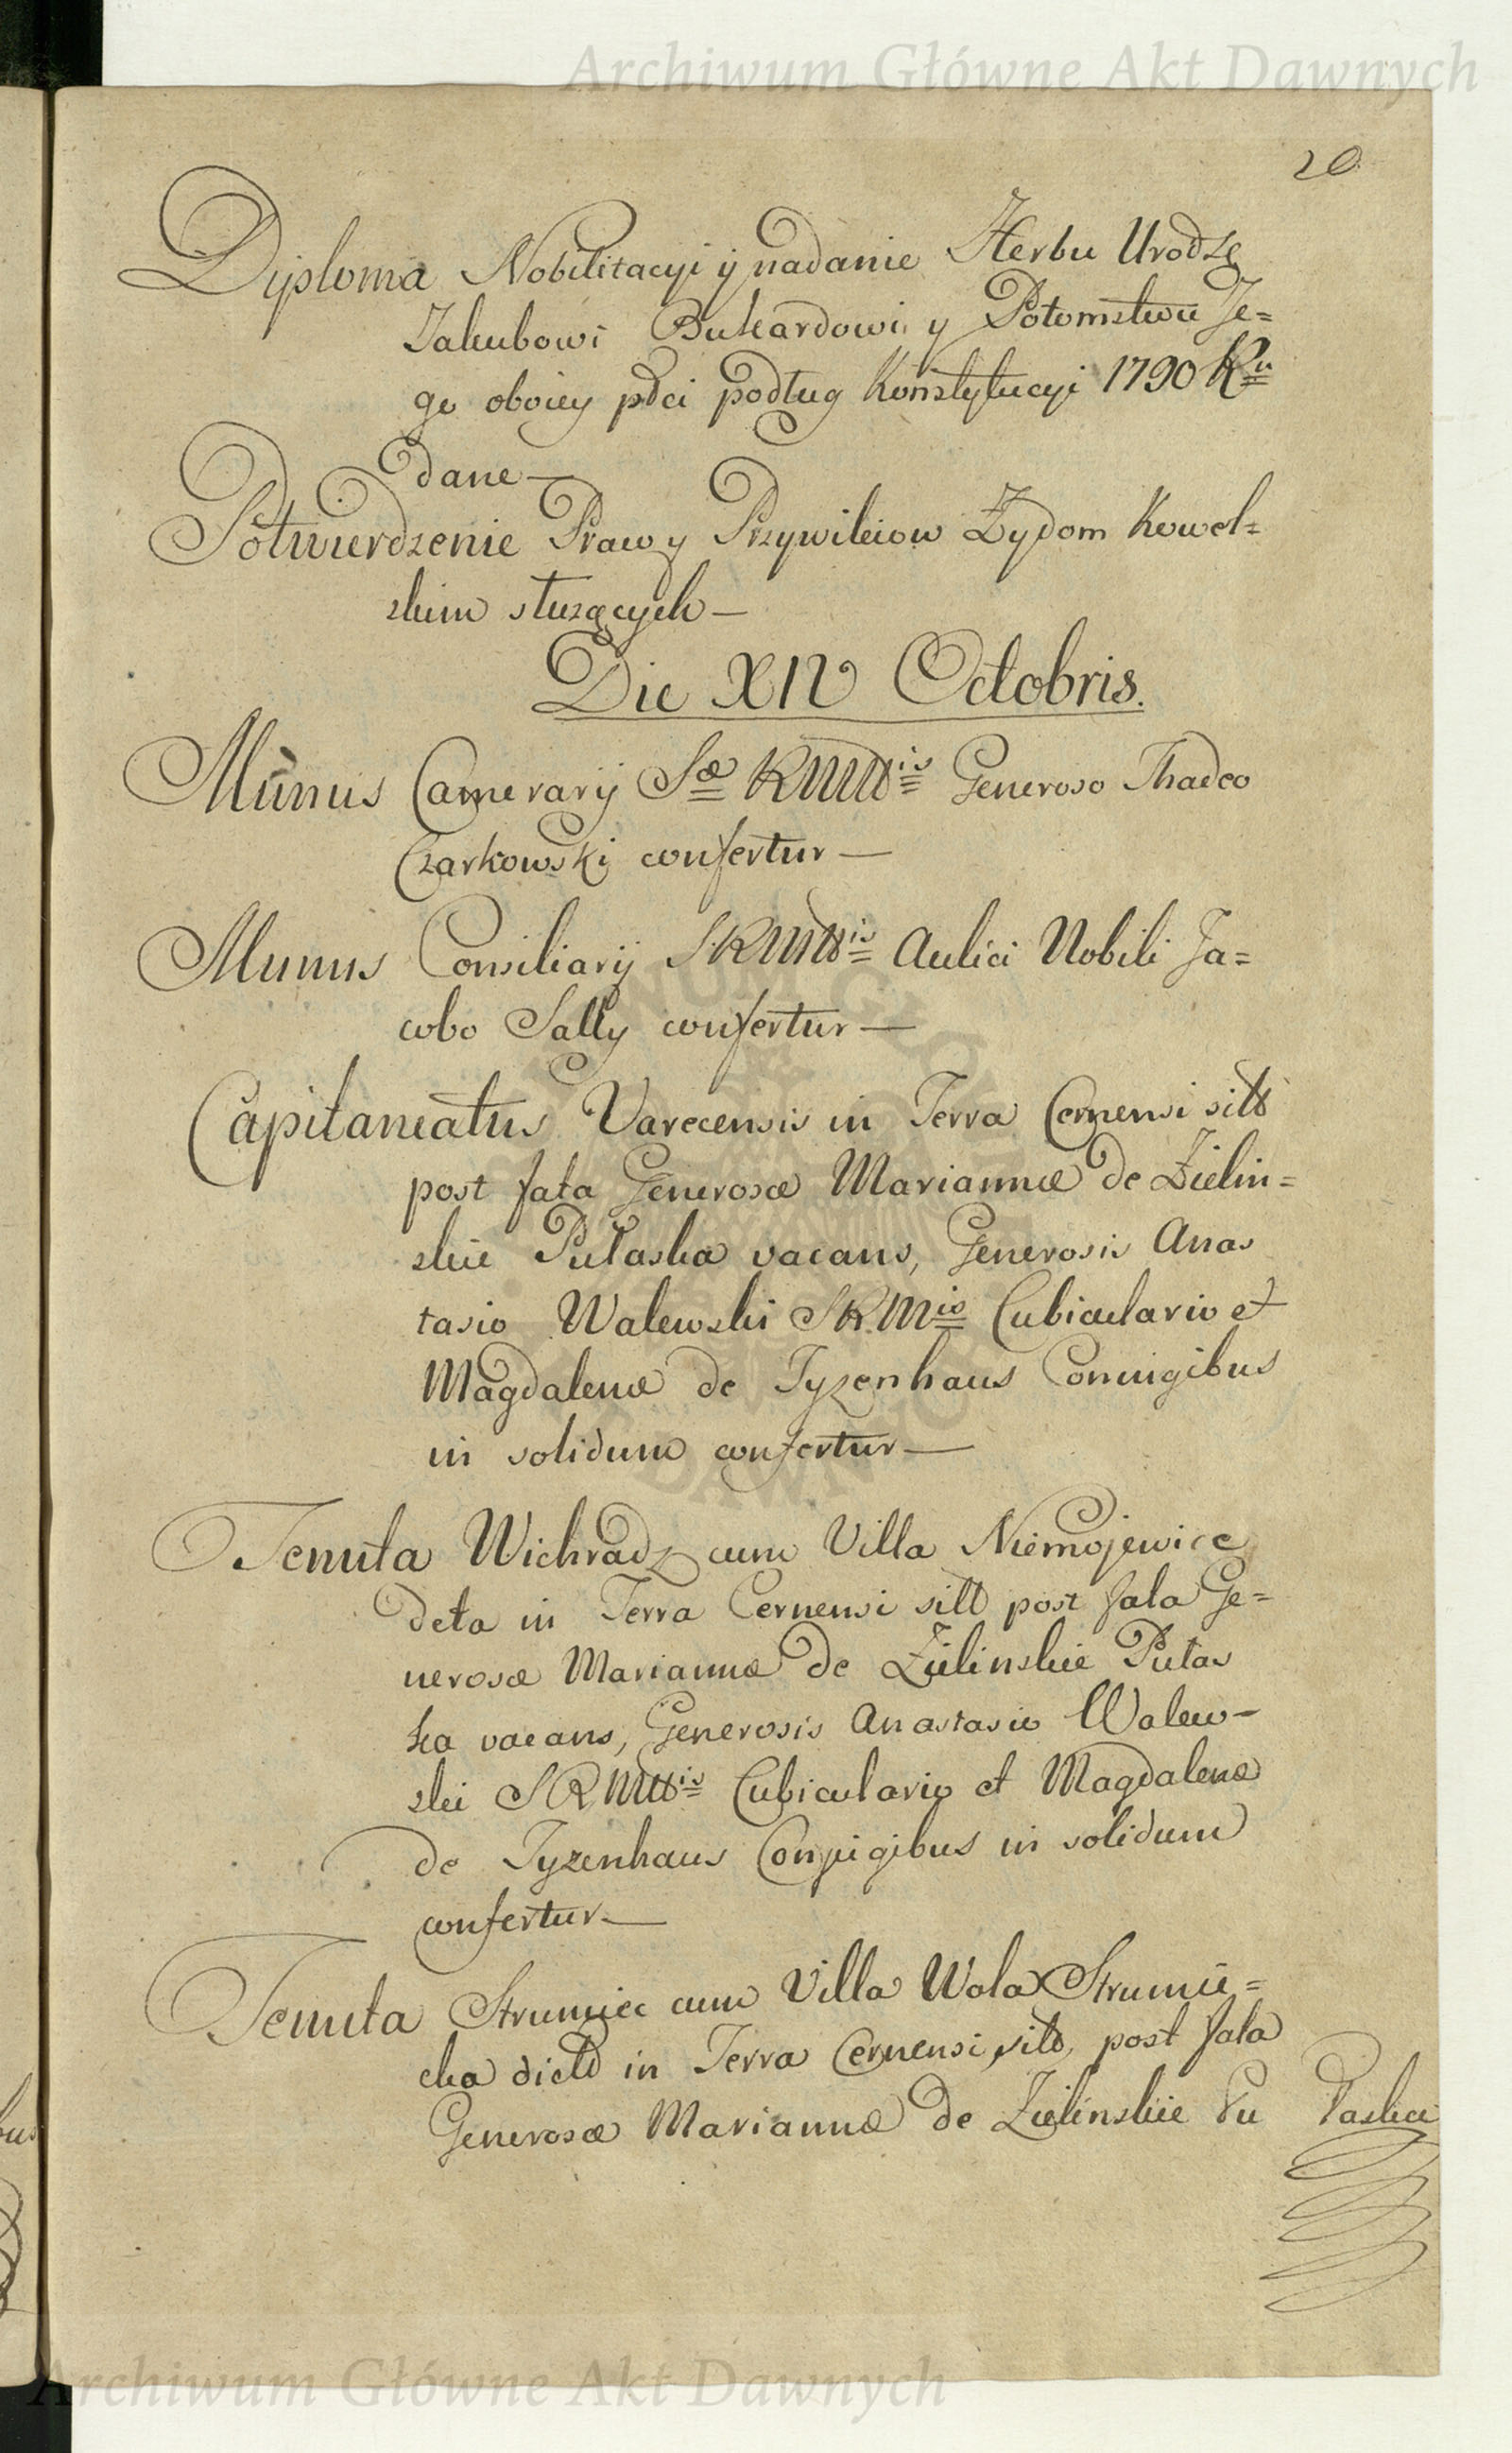 Archiwum Główne Akt Dawnych
20
Diploma Nobilitacyi ÿ nadanie Herbu Urodzę
Jakubowi Bukardowi y Potomstwu Je=
go oboiey płci podług Konstytucyi 1790 Ru
dane —
Potwierdzenie Praw y Przywileiow Żydom Kowel=
skim służących —
Die XIV Octobris.
Munus Camerarij Sæ RMttis Generoso Thadeo
Czarkowski confertur —
Munus Consiliarij SRMttis Aulici Nobili Ja=
cobo Sally confertur —
Capitaneatus Varecensis in Terra Cernensi sitt
post fata Generosæ Mariannæ de Zielin=
skie Pułaska vacans, Generosis Anas
tasio Walewski SRMis Cubiculario et
Magdalenæ de Tyzenhaus Coniugibus
in solidum confertur —
Tenuta Wichradz cum Villa Niemojewice
deta in Terra Cernensi sitt post fata Ge=
nerosæ Mariannæ de Zielinskie Pułas
ka vacans, Generosis Anastasio Walew-
ski SRMttis Cubiculario et Magdalenæ
de Tyzenhaus Conjugibus in solidum
confertur —
Tenuta Strumiec cum Villa Wola Strumie=
cka dictd in Terra Cernensi sitt, post fata
Generosæ Mariannæ de Zielinskie Pu łaska
Archiwum Główne Akt Dawnych